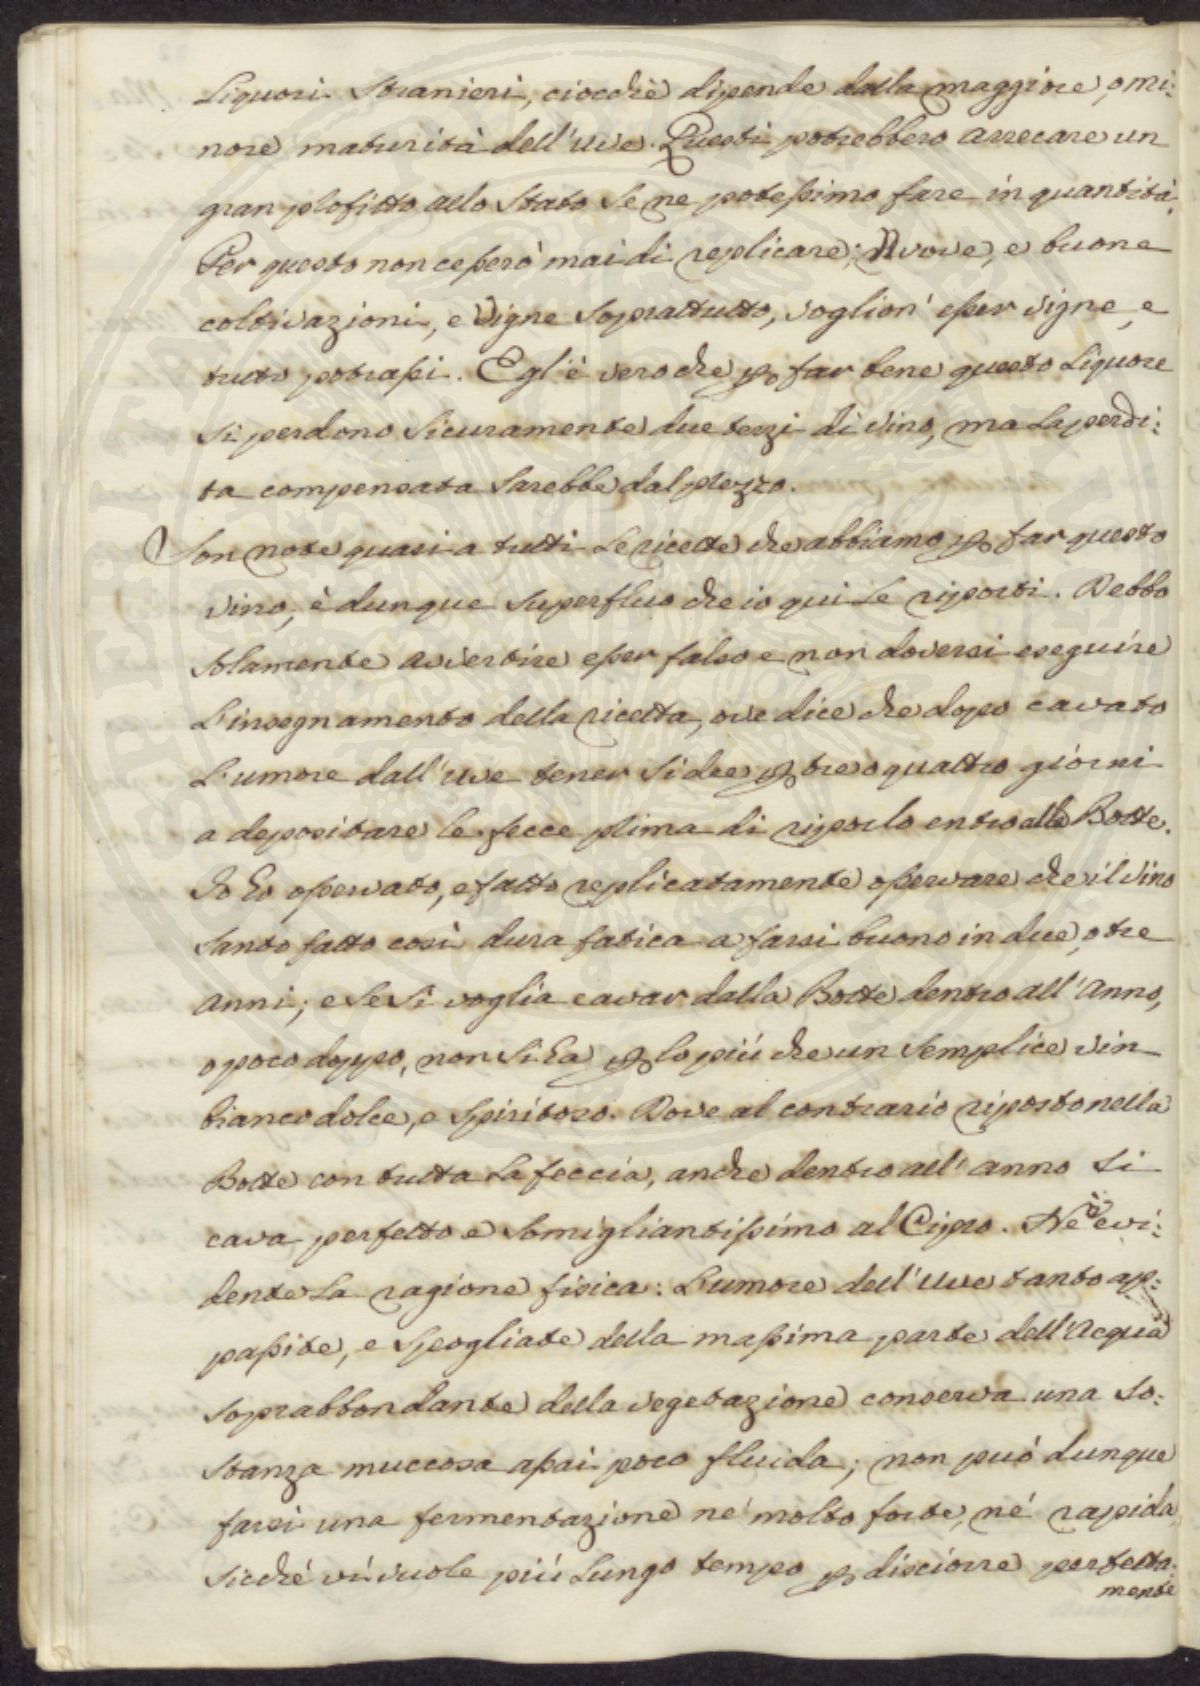 Liquori Stranieri, ciocchè dipende dalla maggiore, o mi:
nore maturità dell'uve. Questi potrebbero arrecare un
gran profitto allo Stato se ne potessimo fare in quantità.
Per questo non cesserò mai di replicare; Nuove, e buone
coltivazioni, e Vigne soprattutto, voglion' esser vigne, e
tutto potrassi. Egl'è vero che p far bene questo Liquore
si perdono sicuramente due terzi di vino, ma la perdi:
ta compensata sarebbe dal prezzo.
Son note quasi a tutti le ricette che abbiamo p far questo
vino, è dunque superfluo che io qui le riporti. Debbo
solamente avvertire esser falso e non doversi eseguire
L'insegnamento della ricetta, ove dice che dopo cavato
L'umore dall'uve tener si dee p tre o quattro giorni
a depositare le fecce prima di riporlo entro alle Botte.
Io ho osservato, e fatto replicatamente osservare che il vino
santo fatto così dura fatica a farsi buono in due, o tre
anni; e se si voglia cavar dalla Botte dentro all'Anno,
o poco doppo, non si ha p lo più che un semplice vin
bianco dolce, e spiritoso. Dove al contrario riposto nella
Botte con tutta la feccia, anche dentro all'anno si
cava perfetto e somigliantissimo al Cipro. Ne è evi:
dente la ragione fisica: L'umore dell'uve tanto ap:
passite, e spogliate della massima parte dell'Acqua
soprabbondante della vegetazione conserva una so:
stanza muccosa assai poco fluida; non può dunque
farsi una fermentazione nè molto forte, nè rapida,
sicchè vi vuole più lungo tempo p disciorre perfetta:
mente